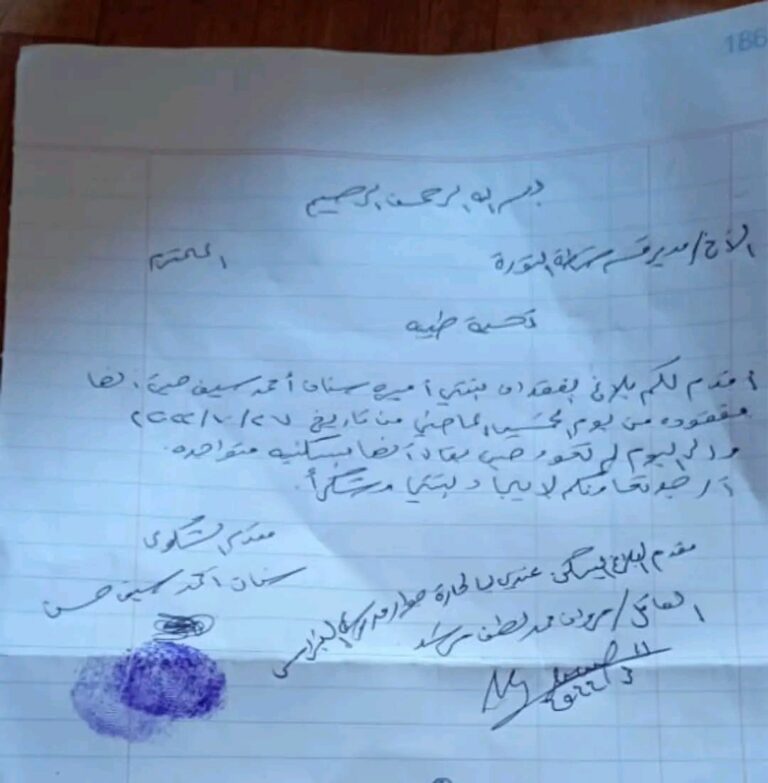 186
بسم الله الرحمن الرحيم
الأخ/ مدير قسم شرطة الثورة المحترم
تحية طيبه
أقدم لكم بلاغ بفقدان بنتي أميره سنان أحمد سيف حيث انها
مفقوده من يوم الخميس الماضي من تاريخ ٢٠٢٢/٧/٢٧
والى اليوم لم تعود حيث انها متواجده.
أرجو تعاونكم لايجاد بنتي وشكراً.
مقدم الشكوى
سنان احمد سيف حسن
مقدم البلاغ يسكن عندي بالحارة جوار مدرسة
العاقل/ مروان محمد لطف مرشد
2022